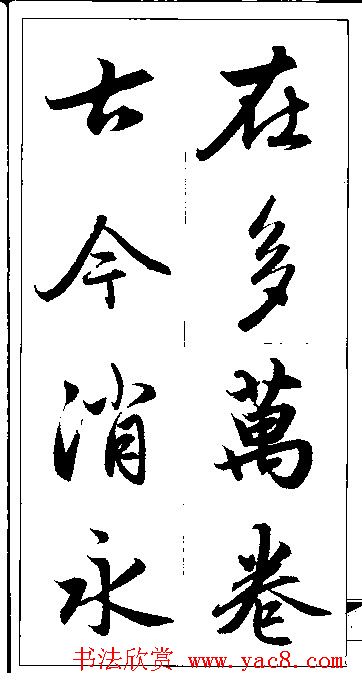 在多萬卷
古今消永
书法欣赏 www.yac8.com